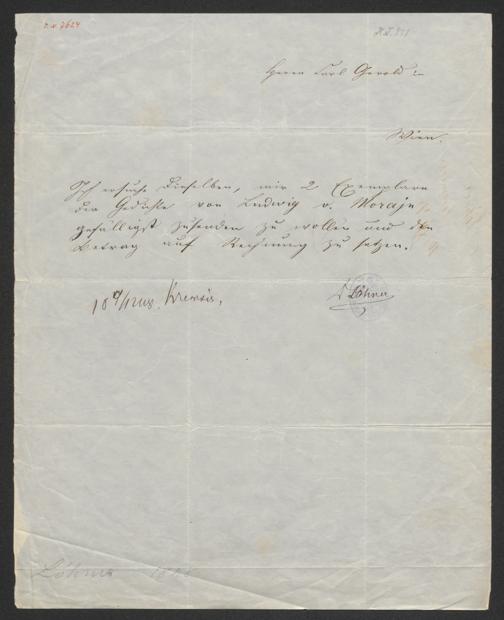 Herrn Carl Gerold
Wien.
Ich ersuche Dieselben, mir 2 Exemplare
der Gedichte von Ludwig v.
gefälligst zusenden zu wollen und den
Betrag auf Rechnung zu setzen.
Kremsier,
Löhner
Löhner